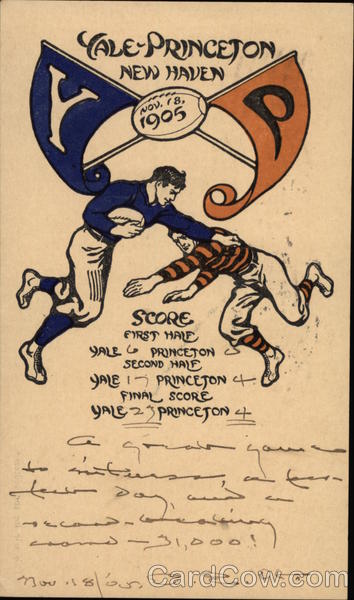 YALE-PRINCETON
NEW HAVEN
NOV. 18,
1905
Y
P
SCORE
FIRST HALF
YALE 6 PRINCETON 0
SECOND HALF
YALE 17 PRINCETON 4
FINAL SCORE
YALE 23 PRINCETON 4
A great game
to witness, a per-
fect day, and a
record-breaking
crowd - 31,000!
Nov. 18/05.
CardCow.com